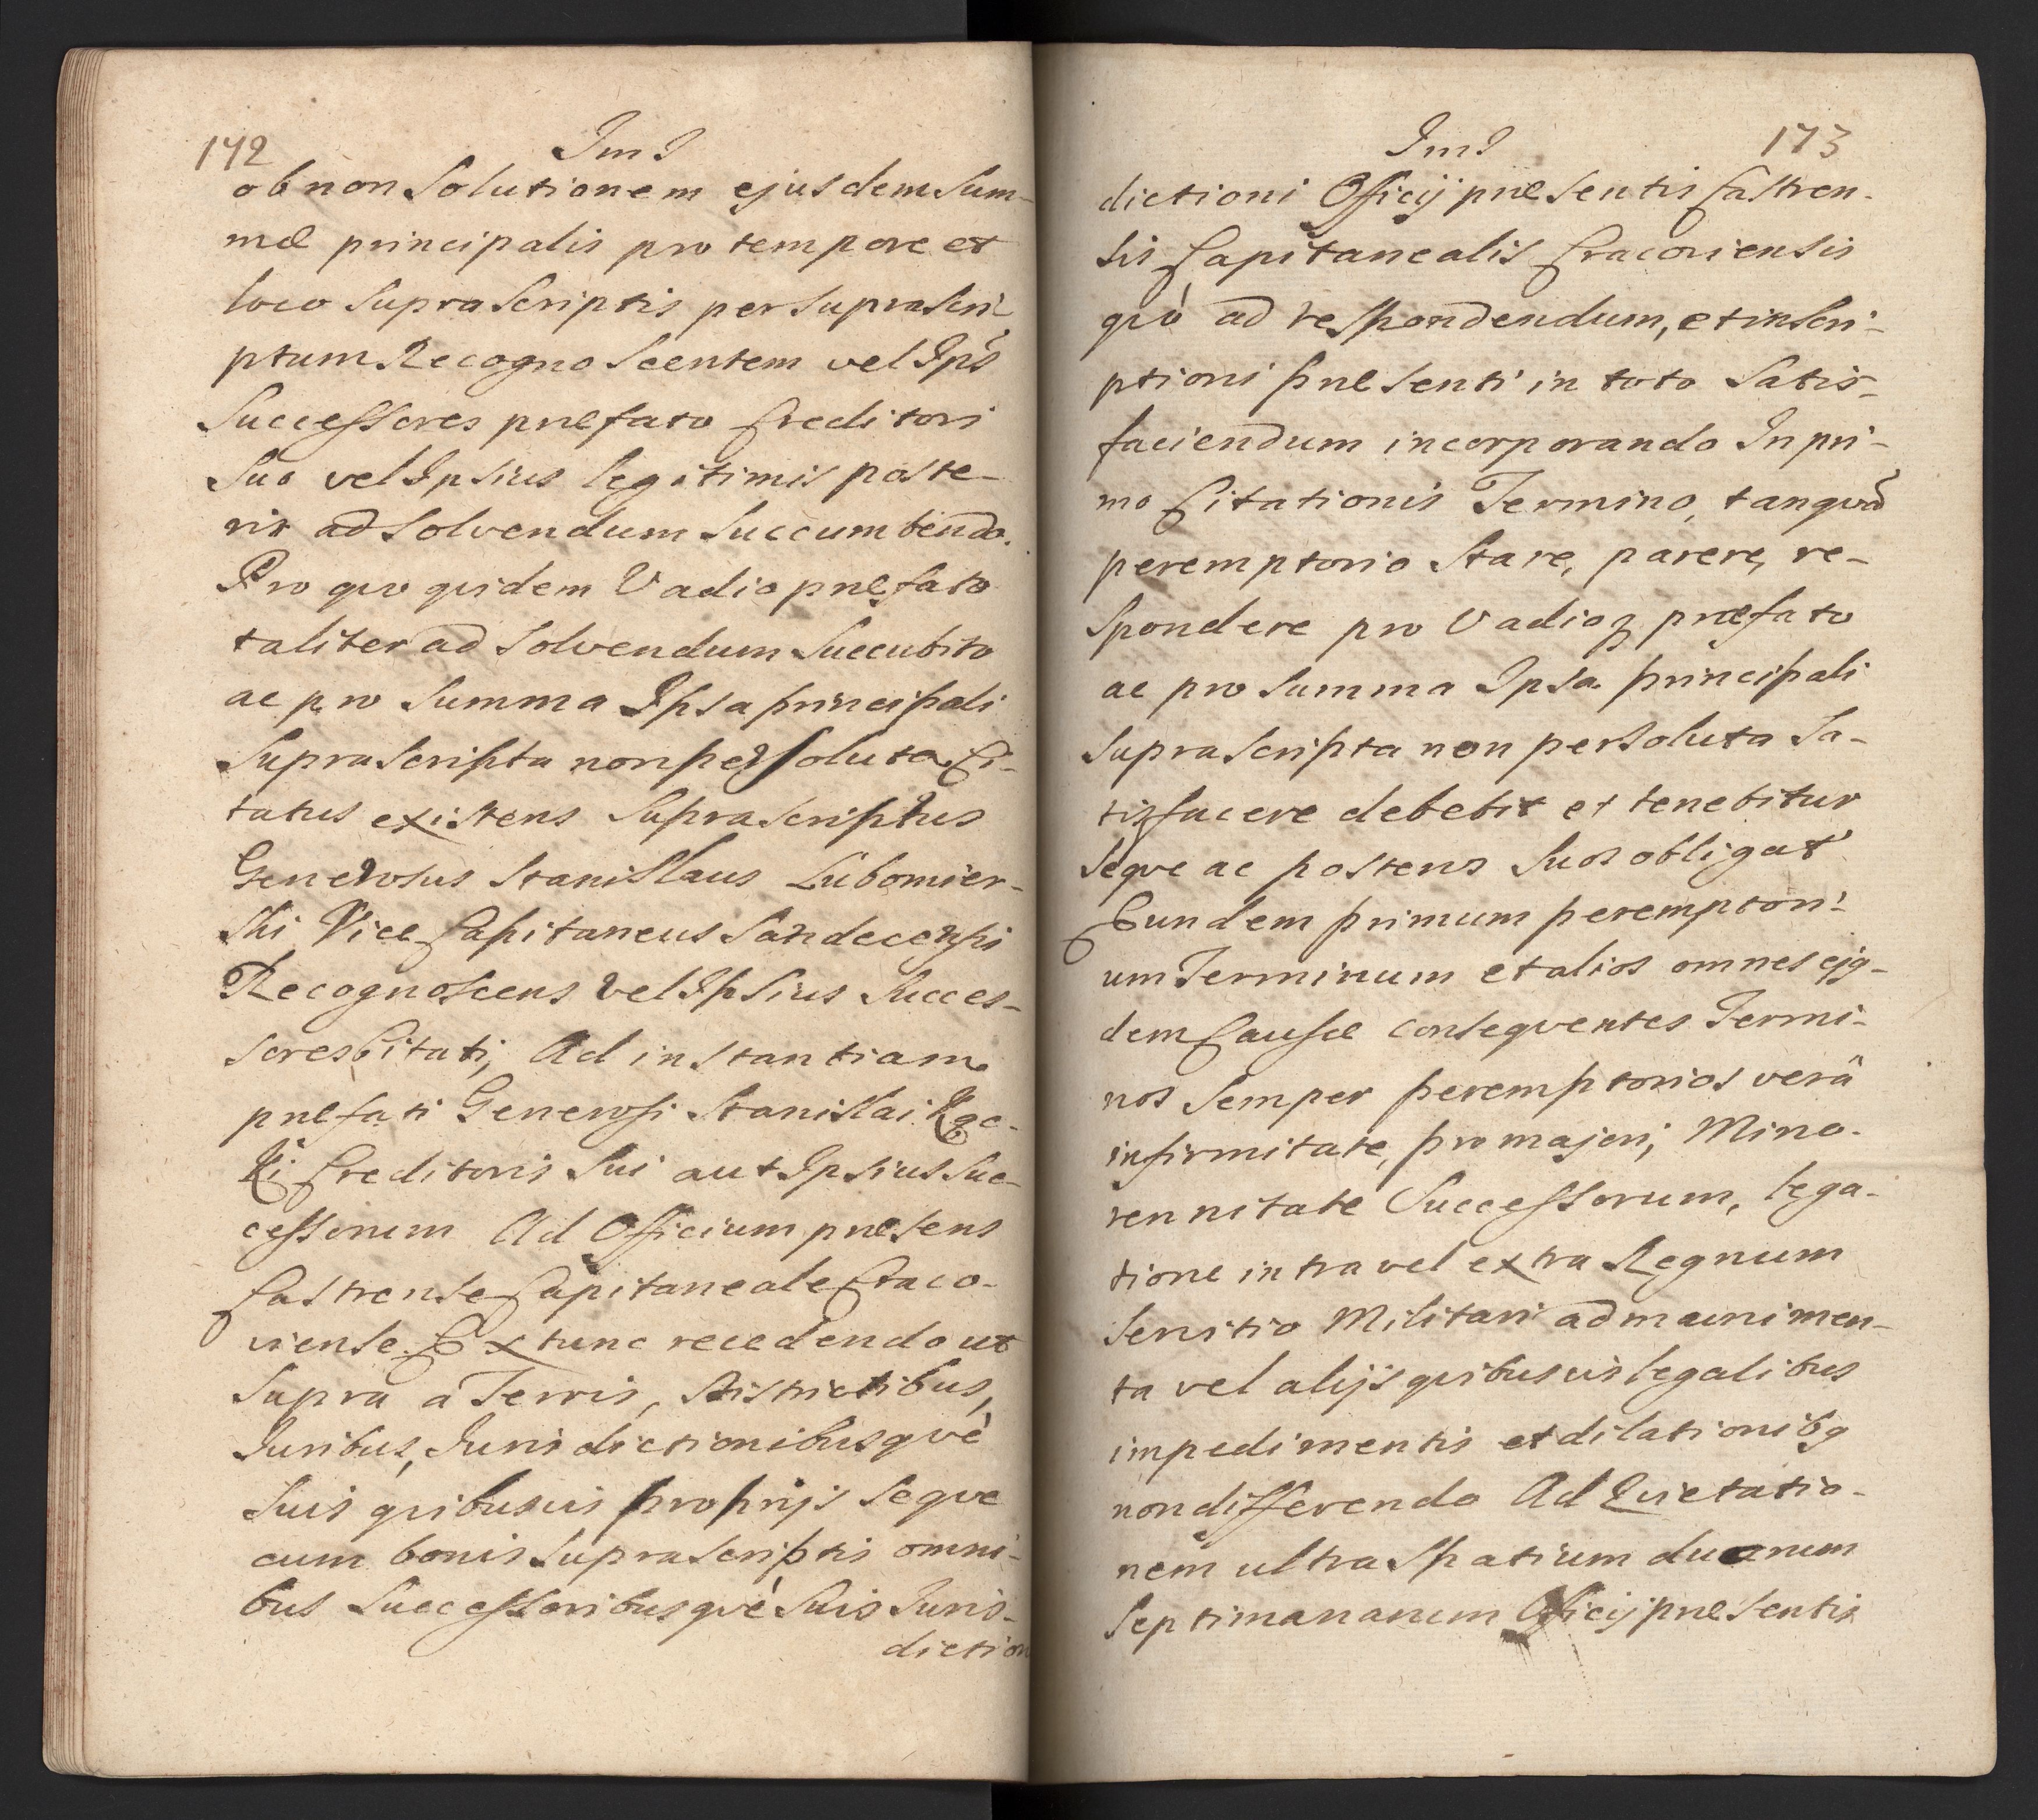 172
Im I
ob non Solutionem ejusdem Sum-
mæ principalis pro tempore et
loco Supra Scriptis per Suprascri-
ptum Recogno Scentem vel Ips
Successores præfato Creditori
Suo vel Ipsius legitimis poste-
ris ad Solvendum Succumbendo.
Pro quo quidem Vadio præfato
taliter ad Solvendum Succubito
ac pro Summa Ipsa principali
Suprascripta non persoluta Ci-
tatus existens Suprascriptus
Generosus Stanislaus Lubomier-
ski Vice Capitaneus Sandecensis
Recognoscens vel Ipsius Succes-
sores Citati, Ad instantiam
præfati Generosi Stanislai
Creditoris Sui aut Ipsius Suc-
cessorum Ad Officium præsens
Castrense Capitaneale Craco-
viense Ex tunc recedendo ut
Supra a Terris, Districtibus,
Juribus, Jurisdictionibusquè
Suis quibusvis proprijs Seque
cum bonis Suprascriptis omni-
bus Successoribusquè Suis Juris-
diction
Im I
173
dictioni Officij præsentis Castren-
sis Capitanealis Cracoviensis
quò ad respondendum, et inscri-
ptioni præsenti in toto Satis-
faciendum incorporando In pri-
mo Citationis Termino, tanquã
peremptorio Stare, parere, re-
spondere pro Vadioq præfato
ac pro Summa Ipsa principali
Suprascripta non persoluta Sa-
tisfacere debebit et tenebitur
Seque ac posteros Suos obligat
Eundem primum peremptori-
um Terminum et alios omnes ejq-
dem Causæ consequentes Termi-
nos Semper peremptorios verâ
infirmitate, pro majori, Mino-
rennitate Successorum, lega-
tione intra vel extra Regnum
Servitio Militari ad munimen-
ta vel alijs quibusvis legalibus
impedimentis et dilationibq
non differendo Ad Quietatio-
nem ultra Spatium duarum
Septimanarum Officij præsentis